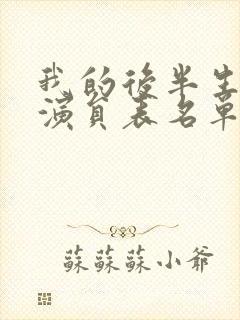 我的後半生
演員表名單
蘇蘇蘇小爺